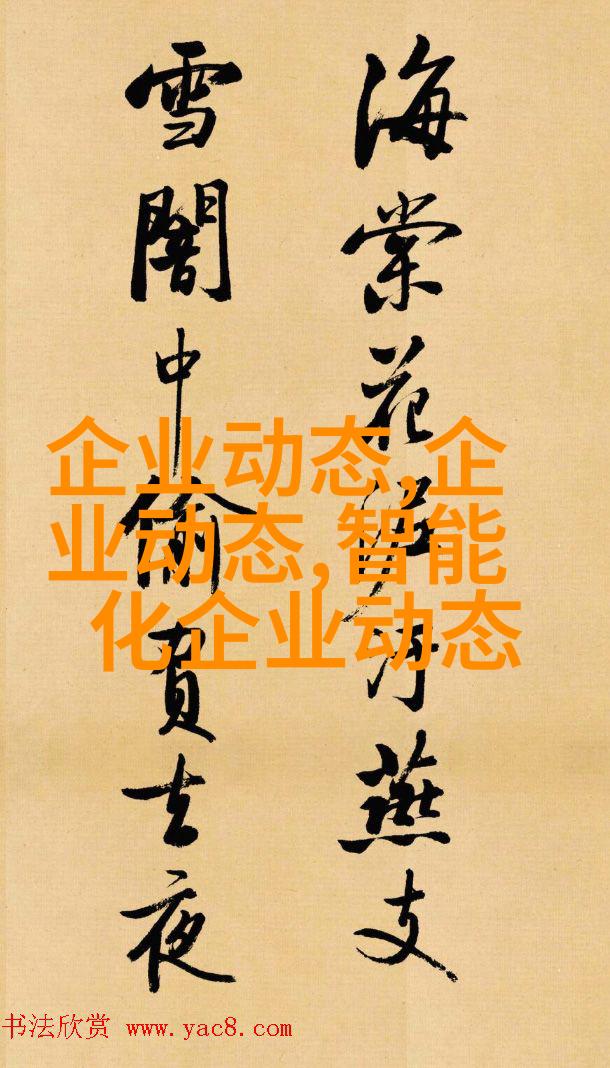 海棠花泥汙燕支
雪闇中偷負去夜
企业动态,企
业动态,智能
化企业动态
书法欣赏 www.yac8.com